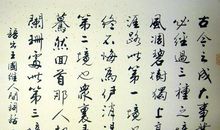 古今之成大事業
必經過三種之境
風凋碧樹獨上
涯路此第一境
終不悔為伊消
第二境也衆裏
驀然回首那人
闌珊處此第三境
語出王國維人間詞話